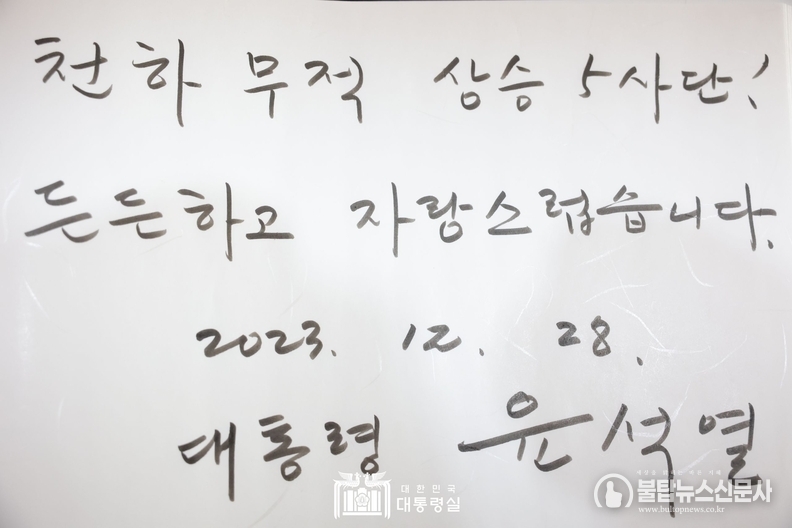 천하무적 상승 5사단!
든든하고 자랑스럽습니다.
2023. 12. 28.
대통령 윤석열
대한민국
대통령실
불탑뉴스신문사
www.bultopnews.co.kr